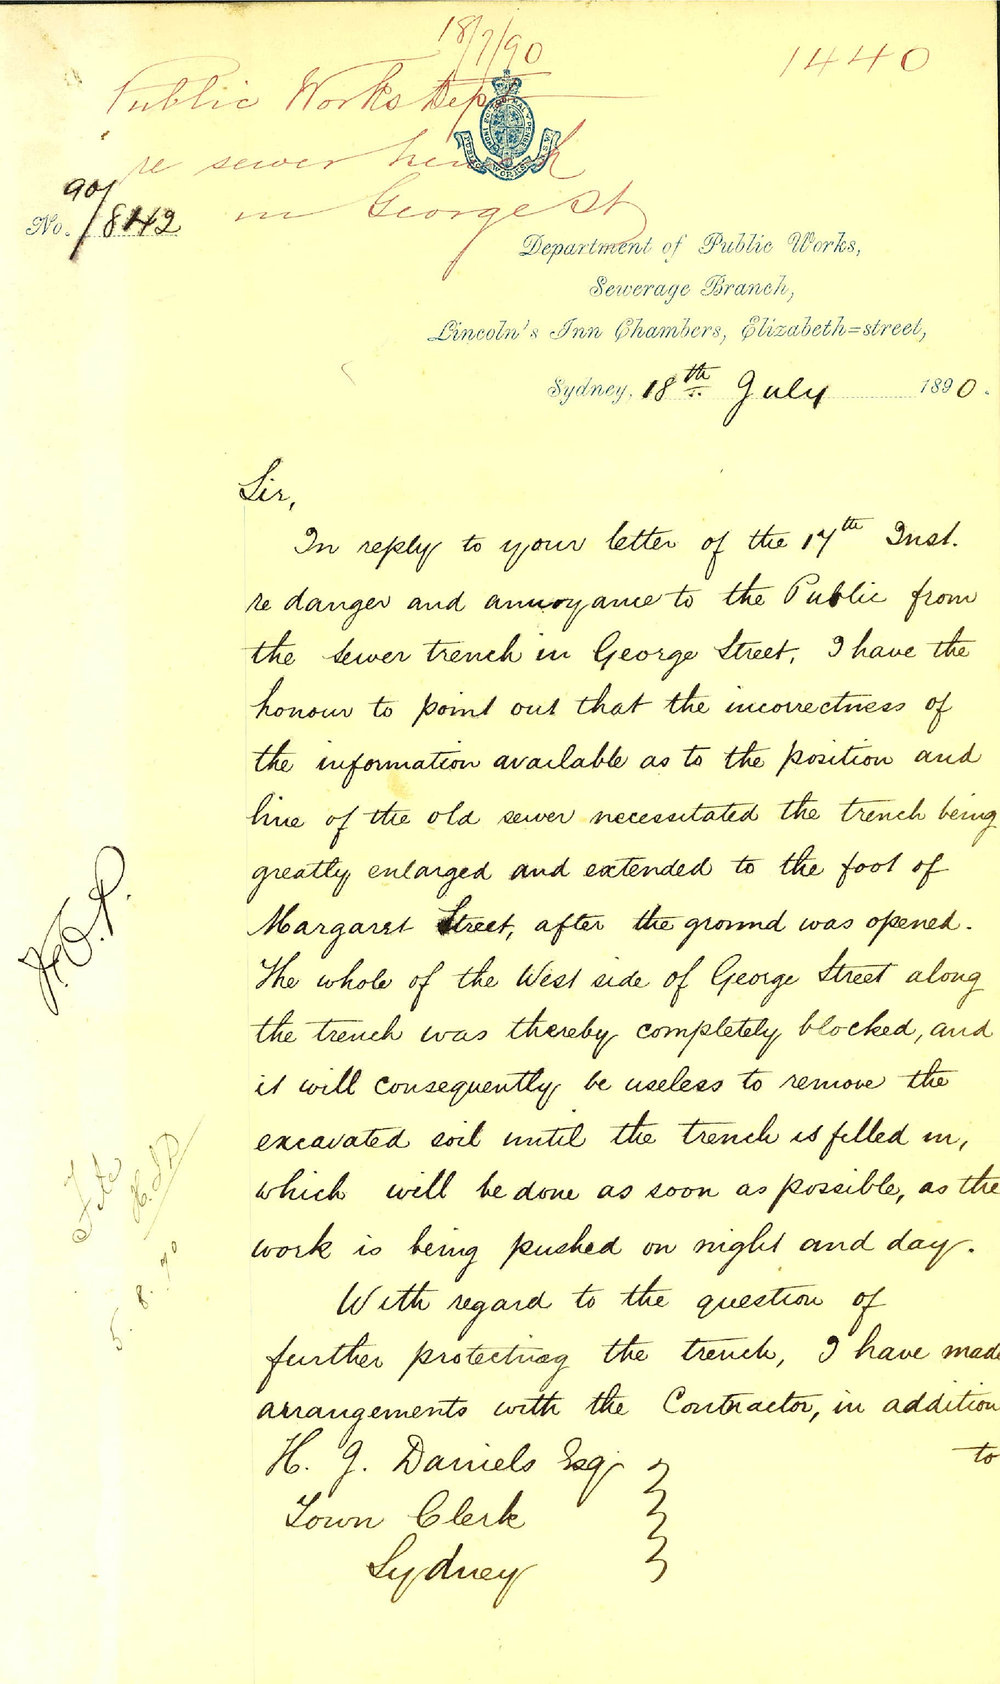 18/7/90
1440
Public Works Dept
re sewer trench
in George St
No. 90/8142
PUBLIC WORKS N.S.W.
Department of Public Works,
Sewerage Branch,
Lincoln's Inn Chambers, Elizabeth=street,
Sydney, 18th July 1890.
Sir,
In reply to your letter of the 17th Inst.
re danger and annoyance to the Public from
the sewer trench in George Street, I have the
honour to point out that the incorrectness of
the information available as to the position and
line of the old sewer necessitated the trench being
greatly enlarged and extended to the foot of
Margaret Street, after the ground was opened.
The whole of the West side of George Street along
the trench was thereby completely blocked, and
it will consequently be useless to remove the
excavated soil until the trench is filled in,
which will be done as soon as possible, as the
work is being pushed on night and day.
With regard to the question of
further protecting the trench, I have made
arrangements with the Contractor, in addition
to
H. J. Daniels Esq
Town Clerk
Sydney
File
5.8.90